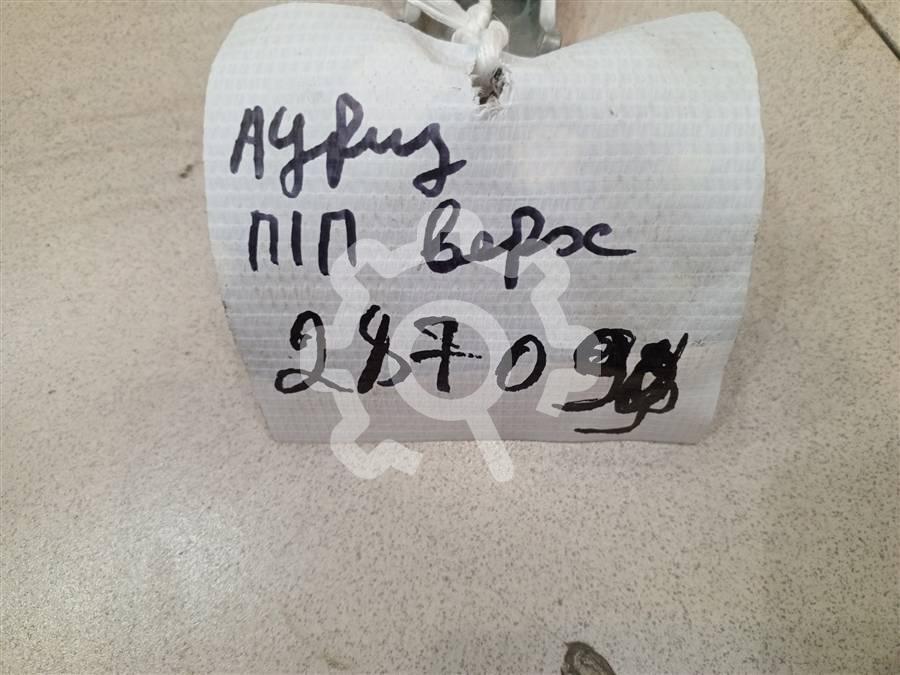 Аурид
П/П верх
28709